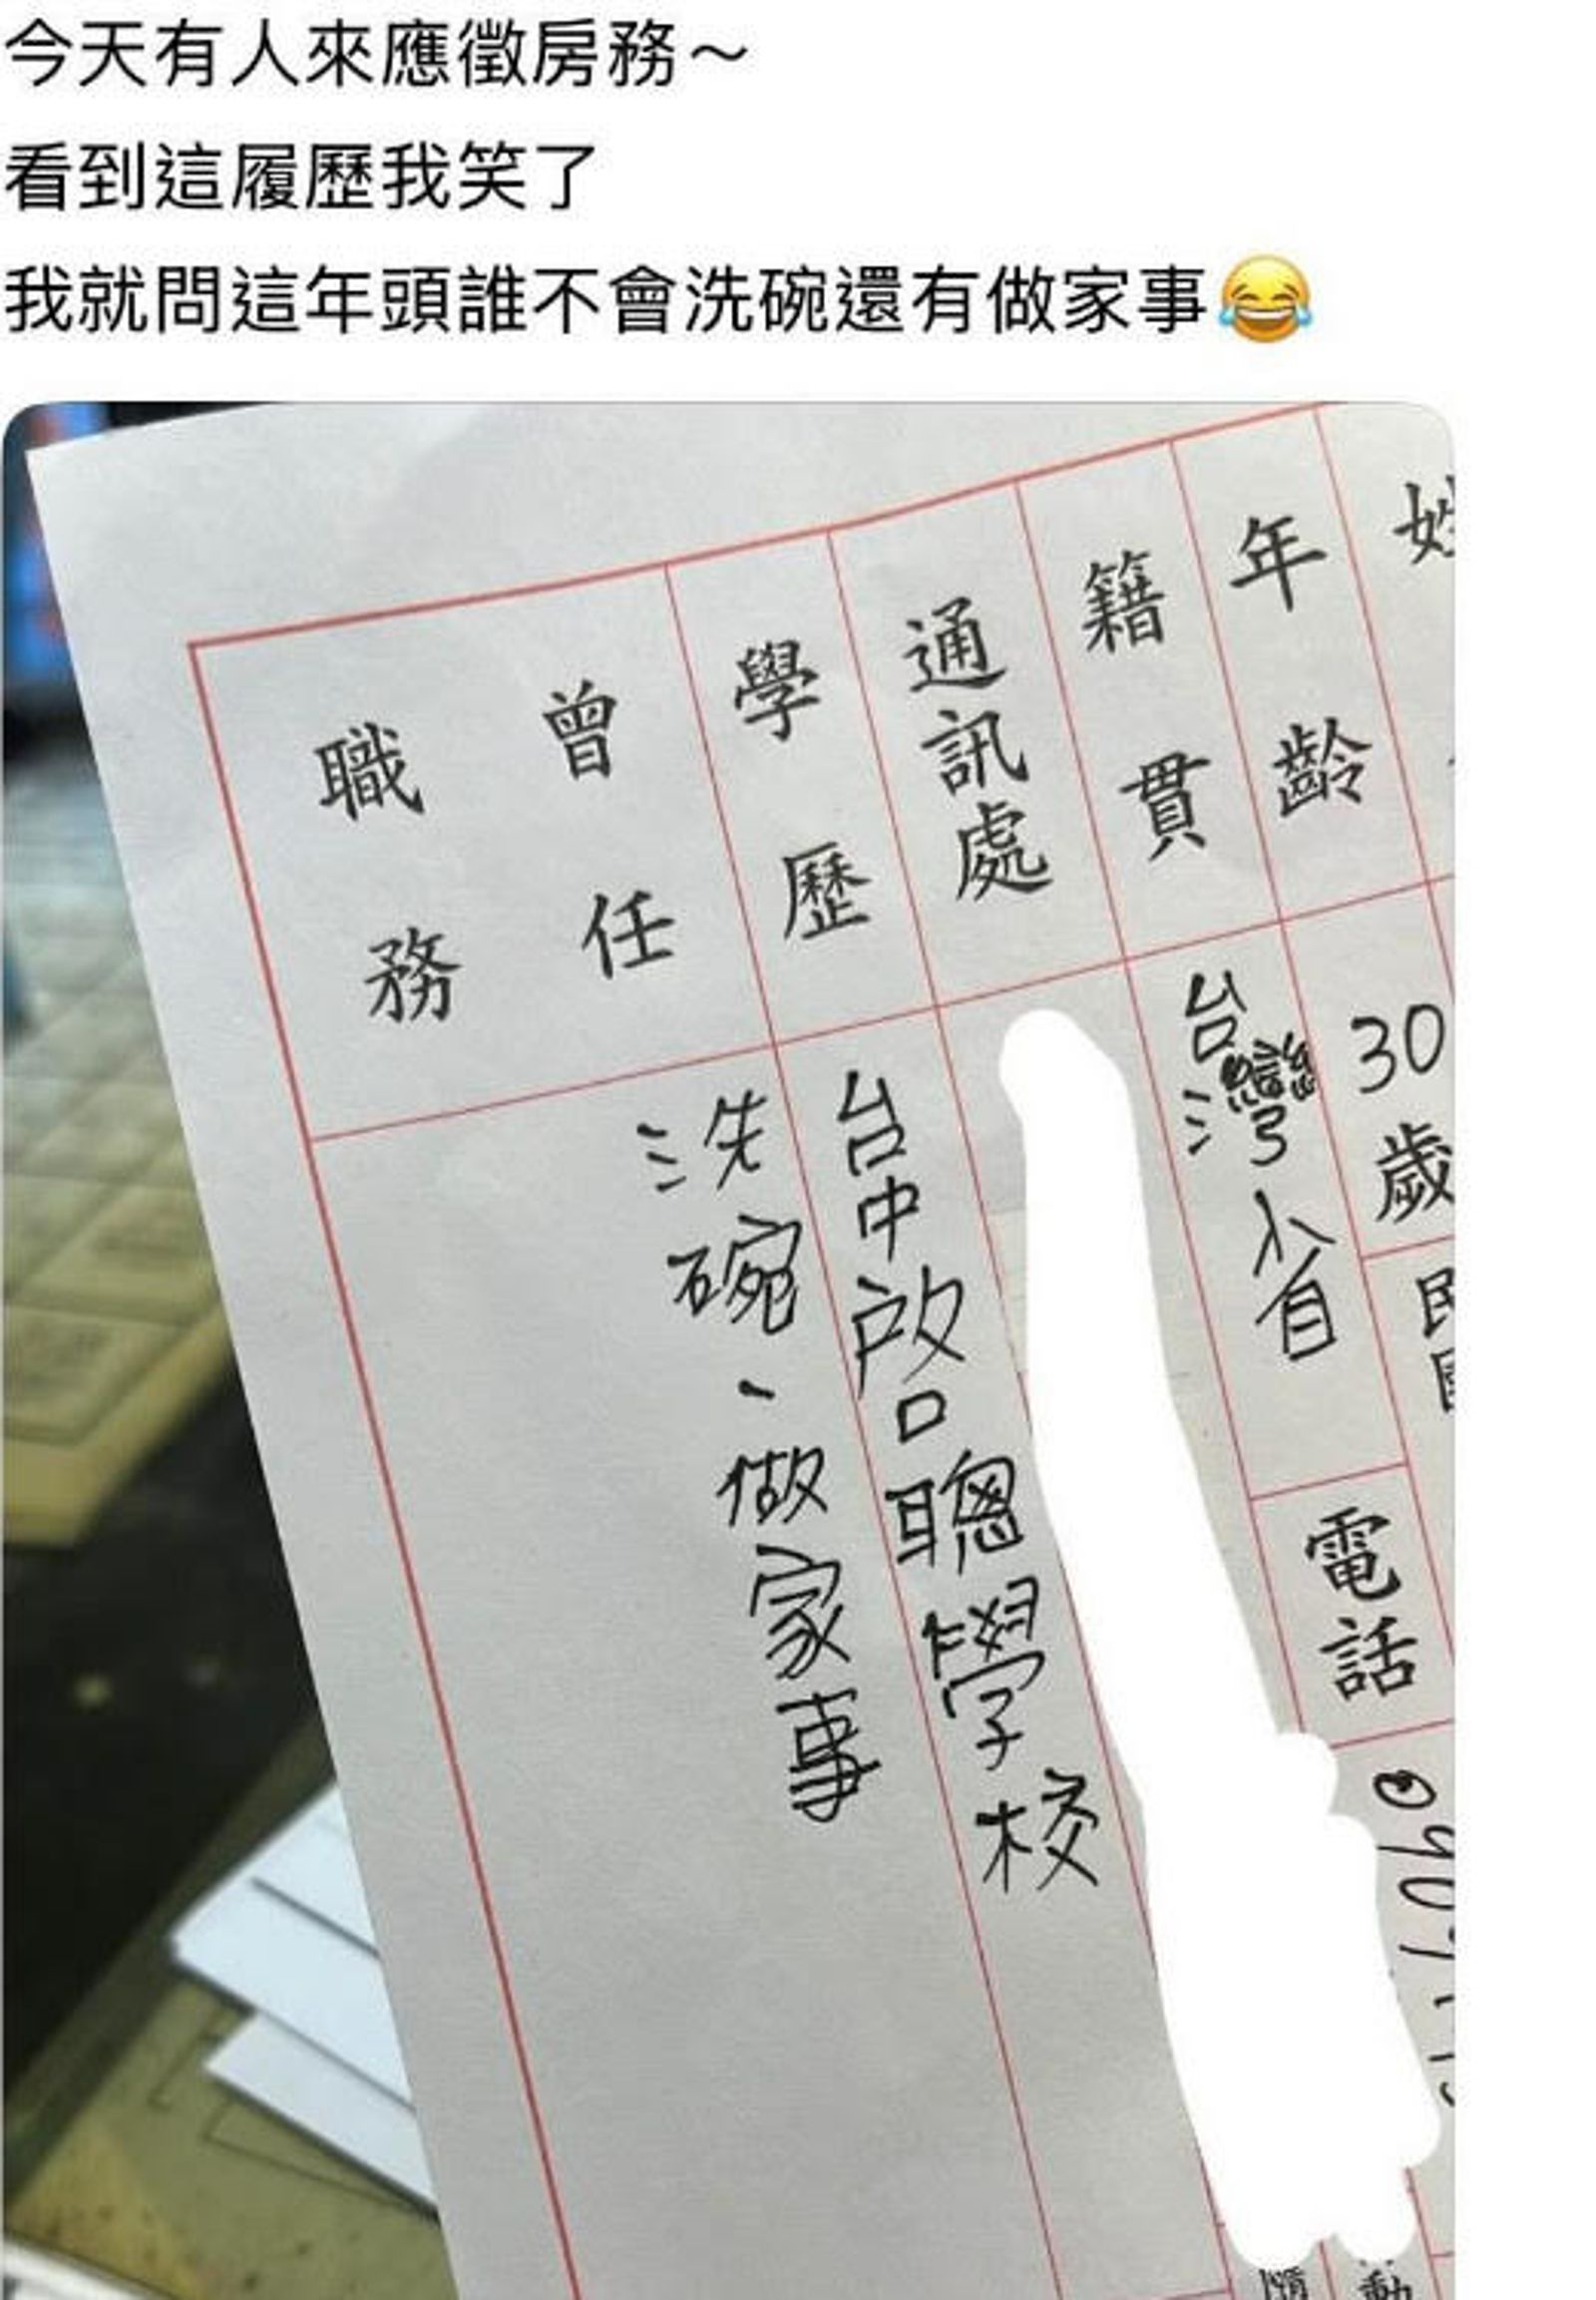 今天有人來應徵房務～
看到這履歷我笑了
我就問這年頭誰不會洗碗還有做家事😂
姓
年齡
30歲
民國
籍貫
台灣省
電話
通訊處
學歷
台中啟聰學校
曾任
職務
洗碗、做家事